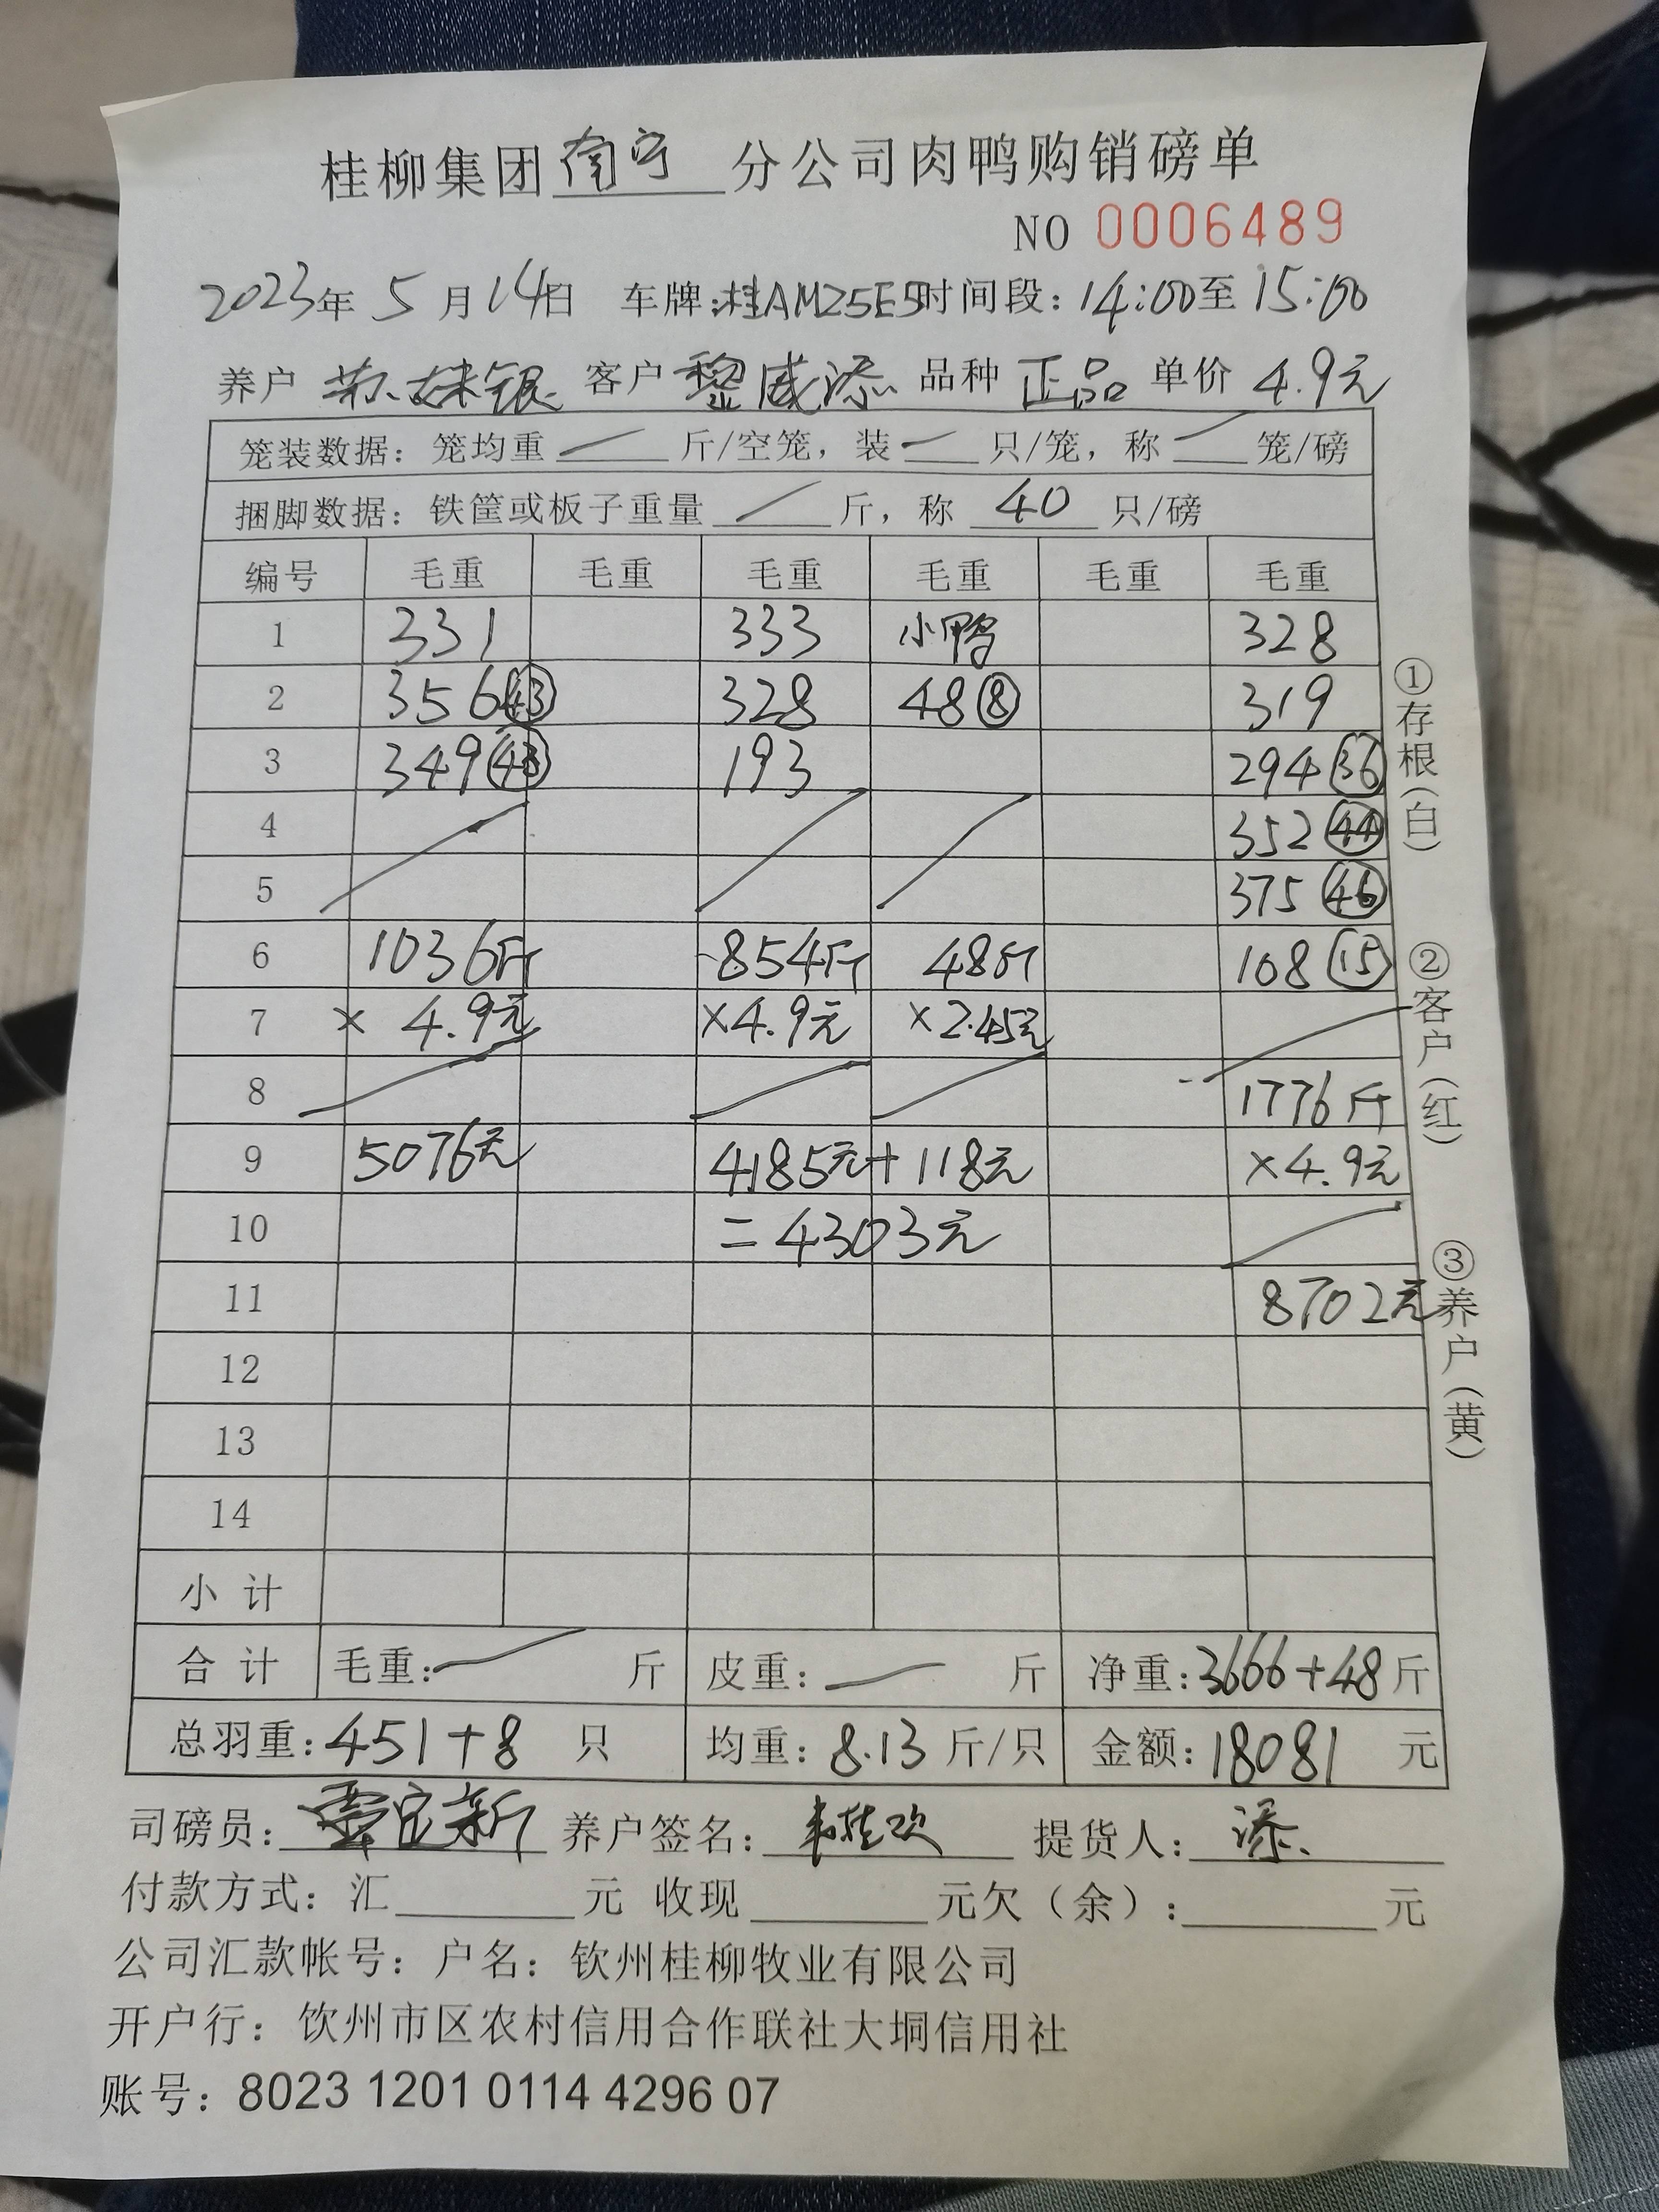 桂柳集团南宁分公司肉鸭购销磅单
NO 0006489
2023年 5 月 14日 车牌:桂AM25E5时间段:14:00至15:00
养户 苏妹银 客户 黎威添 品种 正品 单价 4.9元
笼装数据: 笼均重 — 斤/空笼, 装 — 只/笼, 称 — 笼/磅
捆脚数据: 铁筐或板子重量 — 斤, 称 40 只/磅
编号 毛重 毛重 毛重 毛重 毛重 毛重
1 331 333 小鸭 328
2 356 43 328 48 8 319
3 349 43 193 294 36
4 352 44
5 375 46
6 1036斤 854斤 48斤 108 15
7 × 4.9元 ×4.9元 ×2.45元
8 1776斤
9 5076元 4185元+118元 ×4.9元
10 =4303元
11 8702元
12
13
14
小 计
合 计 毛重:— 斤 皮重:— 斤 净重:3666+48斤
总羽重:451+8 只 均重:8.13 斤/只 金额:18081 元
司磅员: 新 养户签名: 提货人: 添
付款方式: 汇 元 收现 元欠(余): 元
公司汇款帐号: 户名: 钦州桂柳牧业有限公司
开户行: 饮州市区农村信用合作联社大垌信用社
账号: 8023 1201 0114 4296 07
①存根(白)
②客户(红)
③养户(黄)